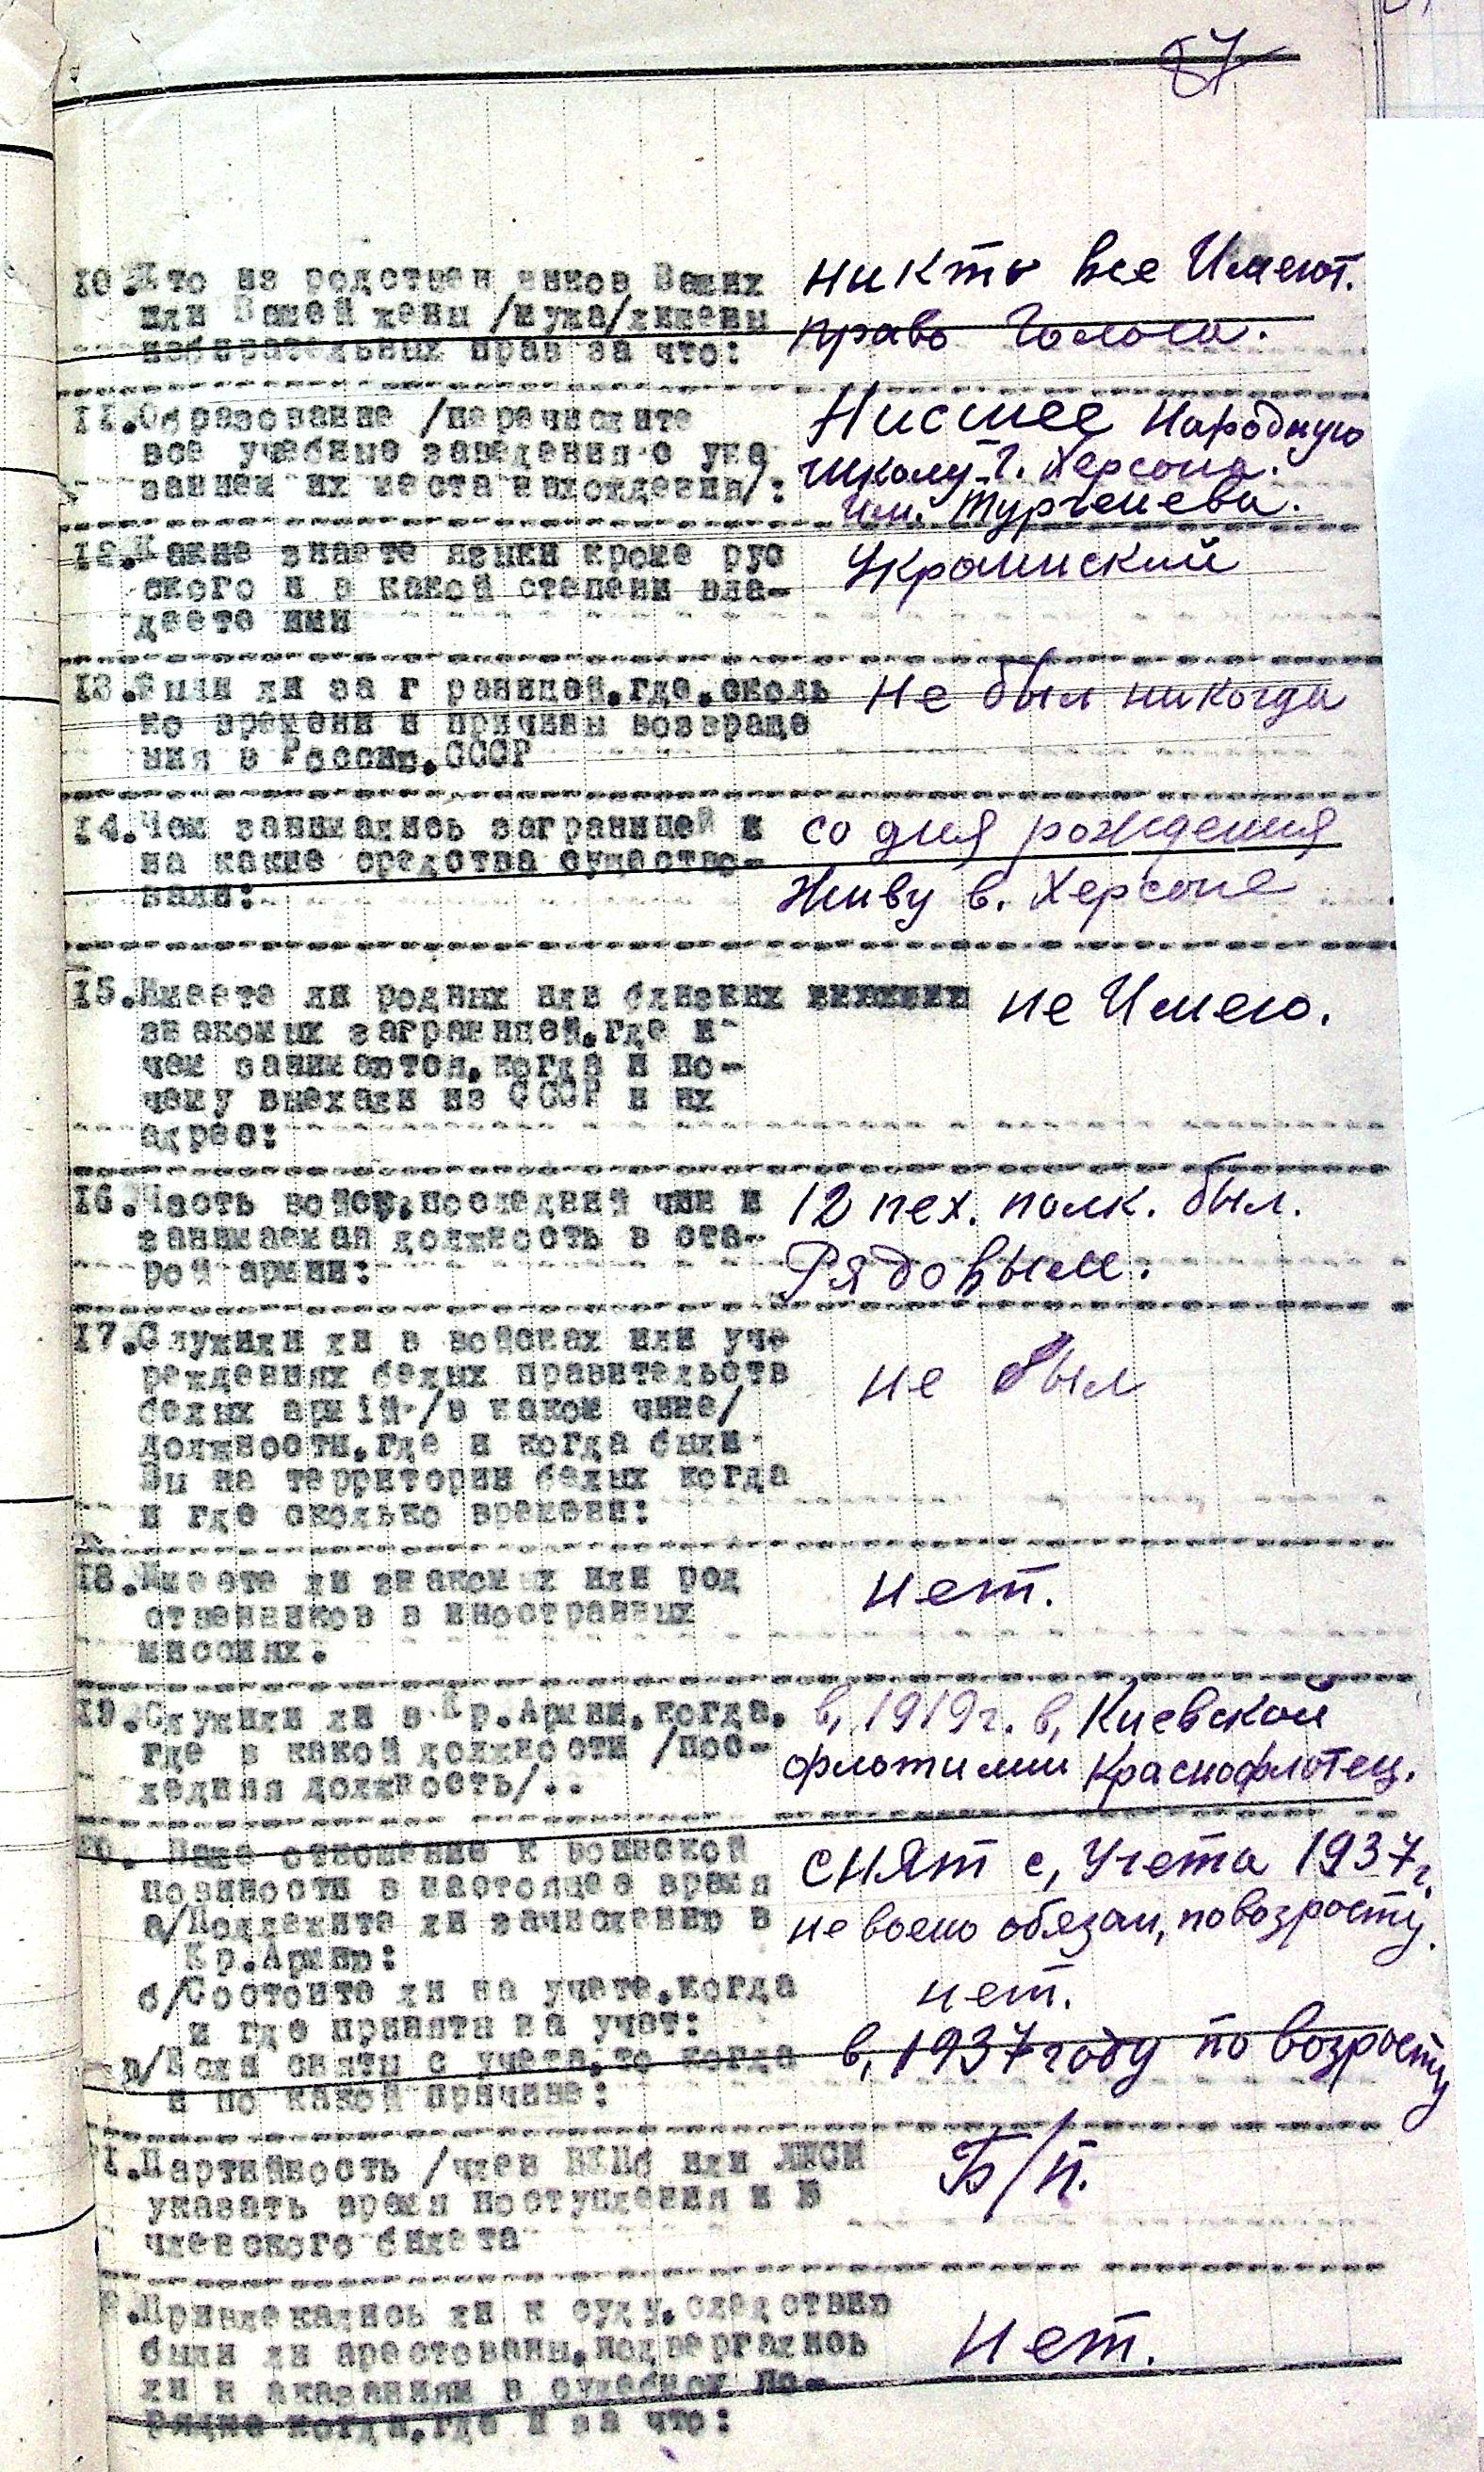 87
10.Кто из родствен ников Ваших никто все Имеют.
или Вашей жены /мужа/лишены право Голоса.
избирательных прав за что:
11.Образование /перечислите Нисшее Народную
все учебные заведения с ука школу г. Херсона.
занием их места нахождения/: им. Тургенева.
12.Какие знаете языки кроме рус Украинский
ского и в какой степени вла-
деете ими
13.Были ли за г раницей.где.сколь не был никогда
ко времени и причины возвраще
ния в Россию.СССР
14.Чем занимались заграницей и со дня рождения
на какие средства существо- живу в. Херсоне
вали:
15.Имеете ли родных или близких не Имею.
знакомых заграницей.где и
чем занимаются.когда и по-
чему выехали из СССР и их
адрес:
16.Часть войск.последний чин и 12 пех. полк. был.
занимаемая должность в ста- Рядовым.
рой армии:
17.Служили ли в войсках или уче
реждениях белых правительств не был
белых армій-/в каком чине/
должности.где и когда были
Вы на территории белых когда
и где сколько времени:
18.Имеете ли знакомых или род нет.
ственников в иностранных
миссиях.
19.Служили ли в Кр.Армии.когда. в, 1919г. в, Киевской
где в какой должности /пос- флотилии Краснофлотец.
ледняя должность/..
20. Ваше отношение к воинской снят с, Учета 1937г.
повиности в настоящее время
а/Подлежите ли зачислению в не воено обязан, по возросту.
Кр.Армию:
б/Состоите ли на учете.когда нет.
и где приняты на учет:
в/Если сняты с учета.то когда в, 1937 году по возросту
и по какой причине:
1.Партийность /член ВКПб или ЛКСМ Б/п.
указать время поступления и №
членского билета
2.Привлекались ли к суду.следствию
были ли арестованы.подвергались нет.
ли н аказаниям в судебном по-
рядке когда.где и за что: